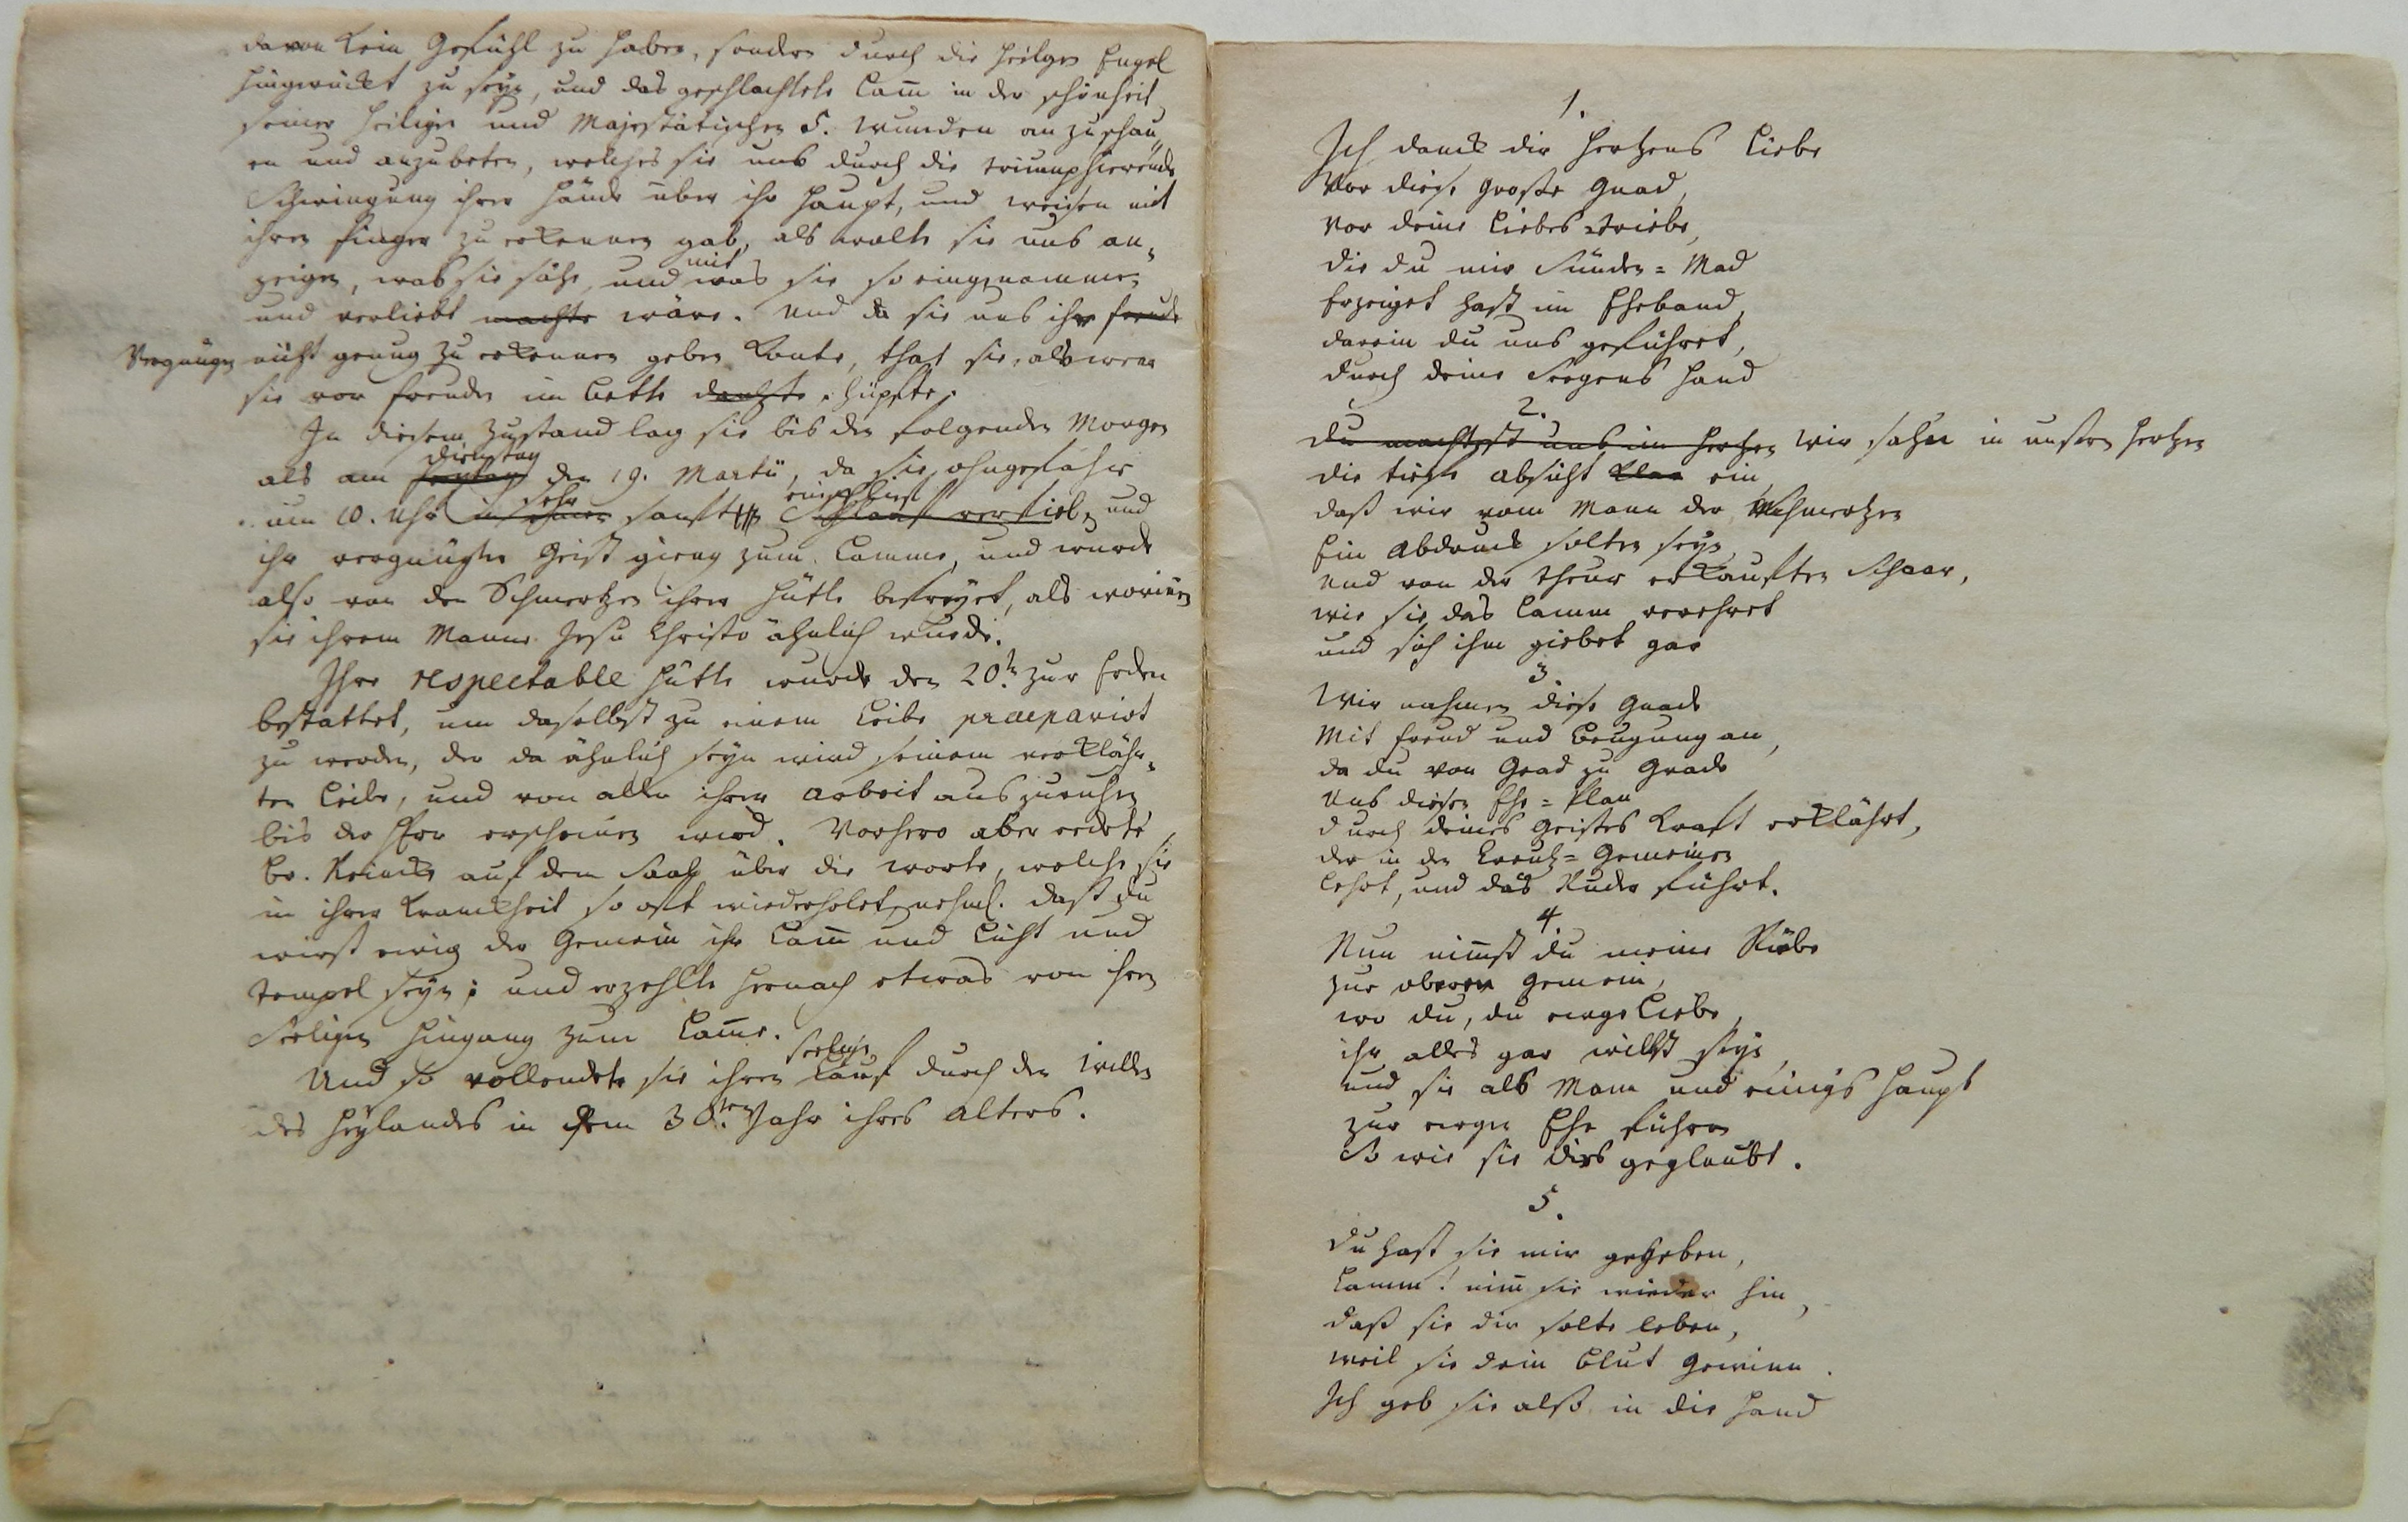 davon kein Gefühl zu haben, sondern durch die heilgen Engel
hingerückt zu seyn, und das geschlachtete Lam̄ in der schönheit
seiner heiligen und Majestätischen 5. Wunden an zu schau„
en und anzubeten, welches sie uns durch die triumphierende
Schwingung ihrer Hände über ihr Haupt, und weisen mit
ihren finger zu erkennen gab, als wolte sie uns an„
zeigen, was sie sähe, und mit was sie so eingenommen
und verliebt machte wäre. Und da sie uns ihr freude
Vergnügen nicht genug zu erkennen geben konte, that sie, als wenn
sie vor freuden im bette hüpfte.
In diesem Zustand lag sie bis den folgenden Morgen
als am dienstag den 19. Martii, da sie ohngefähr
um 10. Uhr sehr sanft einschlief Schlaaf verfiel, und
ihr vergnügter Geist gieng zum Lamme, und wurde
also von den Schmertzen ihrer Hütte befreyet, als worinen
sie ihrem Manne Jesu Christo ähnlich wurde.
Ihre respectable Hütte wurde den 20t. zur Erden
bestattet, um daselbst zu einem Leibe praepariert
zu werden, der da ähnlich seyn wird seinem verklähr„
ten Leibe, und von aller ihrer Arbeit auszuruhen
bis der Herr erscheinen wird. Vorhero aber redete
Br. Reincke auf dem Saal über die worte, welche sie
in ihrer Kranckheit so oft wiederholet, nehml. dass du
wirst ewig der Gemein ihr Lam̄ und Licht und
tempel seyn; und erzehlte hernach etwas von ihrem
Seeligen hingang zum Lam̄e.
Und so vollendete sie ihren seeligen Lauf durch den Willen
des Heylandes in dem 30.ten Jahr ihres Alters.
1.
Ich danck dir Hertzens Liebe
Vor diese große Gnad,
vor deine Liebes triebe,
die du mir Sünder=Mad
Erzeiget hast im Eheband,
darein du uns geführet,
durch deine Seegens Hand
2.
du machtest uns im Hertzen Wir sahen in unsern Hertzen
die tiefe absicht klar ein
daß wir vom Mann der Schmertzen
Ein Abdruck solten seyn,
und von der theur erkauften Schaar,
wie sie das Lamm verehret
und sich ihm giebet gar
3.
Wir nahmen diese Gnade
Mit freud und Beugung an,
da du von Grad zu Grade
Uns diesen Ehe=Plan
durch deines Geistes Kraft erklährt,
der in den Creutz=Gemeinen
lehrt, und das Ruder führt.
4.
Nun nim̄st du meine Riebe
zur oberen Gemein,
wo du, du ewge Liebe,
ihr alles gar willst seyn,
und sie als Mann und einigs Haupt
zur ewgen Ehe führen
So wie sie dirs geglaubt.
5.
du hast sie mir gegeben,
Lamm! nim̄ sie wieder hin,
daß sie dir solte leben,
weil sie dein Blut Gewinn.
Ich geb sie alß in die Hand